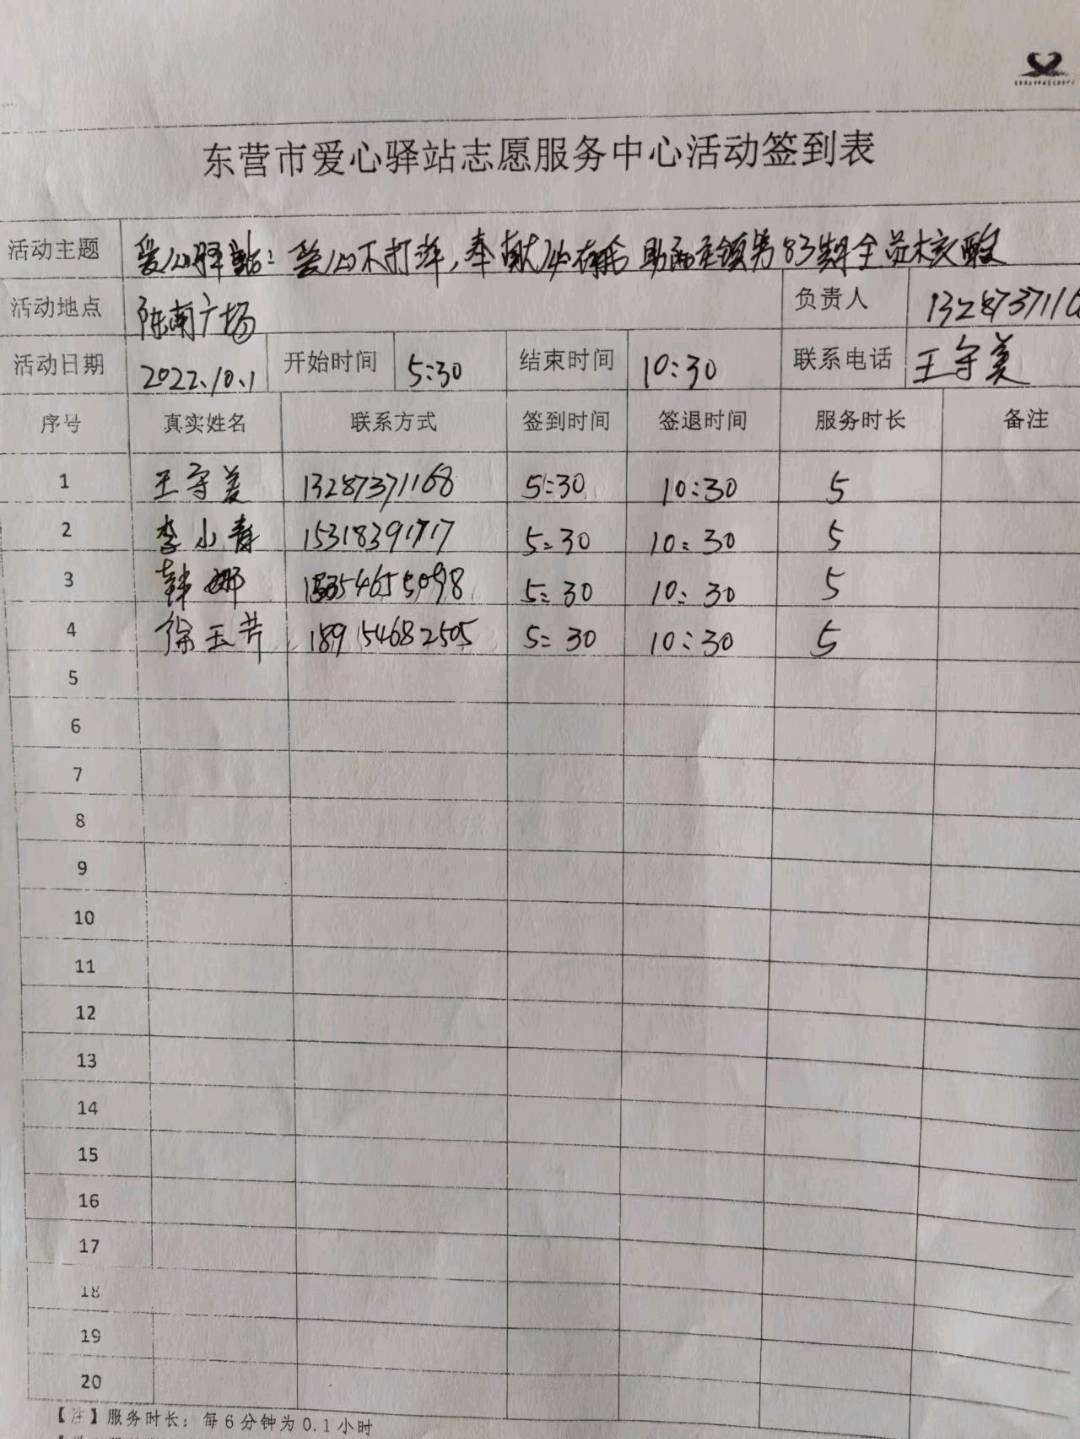 东营市爱心驿站志愿服务中心活动签到表
活动主题 爱心驿站：爱心不打烊，奉献 第83期全员核酸
活动地点 陈南广场 负责人 132873711
活动日期 2022.10.1 开始时间 5:30 结束时间 10:30 联系电话 王守美
序号 真实姓名 联系方式 签到时间 签退时间 服务时长 备注
1 王守美 13287371168 5:30 10:30 5
2 李小春 15318391717 5:30 10:30 5
3 韩娜 5:30 10:30 5
4 徐玉芳 189154682505 5:30 10:30 5
5
6
7
8
9
10
11
12
13
14
15
16
17
18
19
20
【注】服务时长：每6分钟为0.1小时